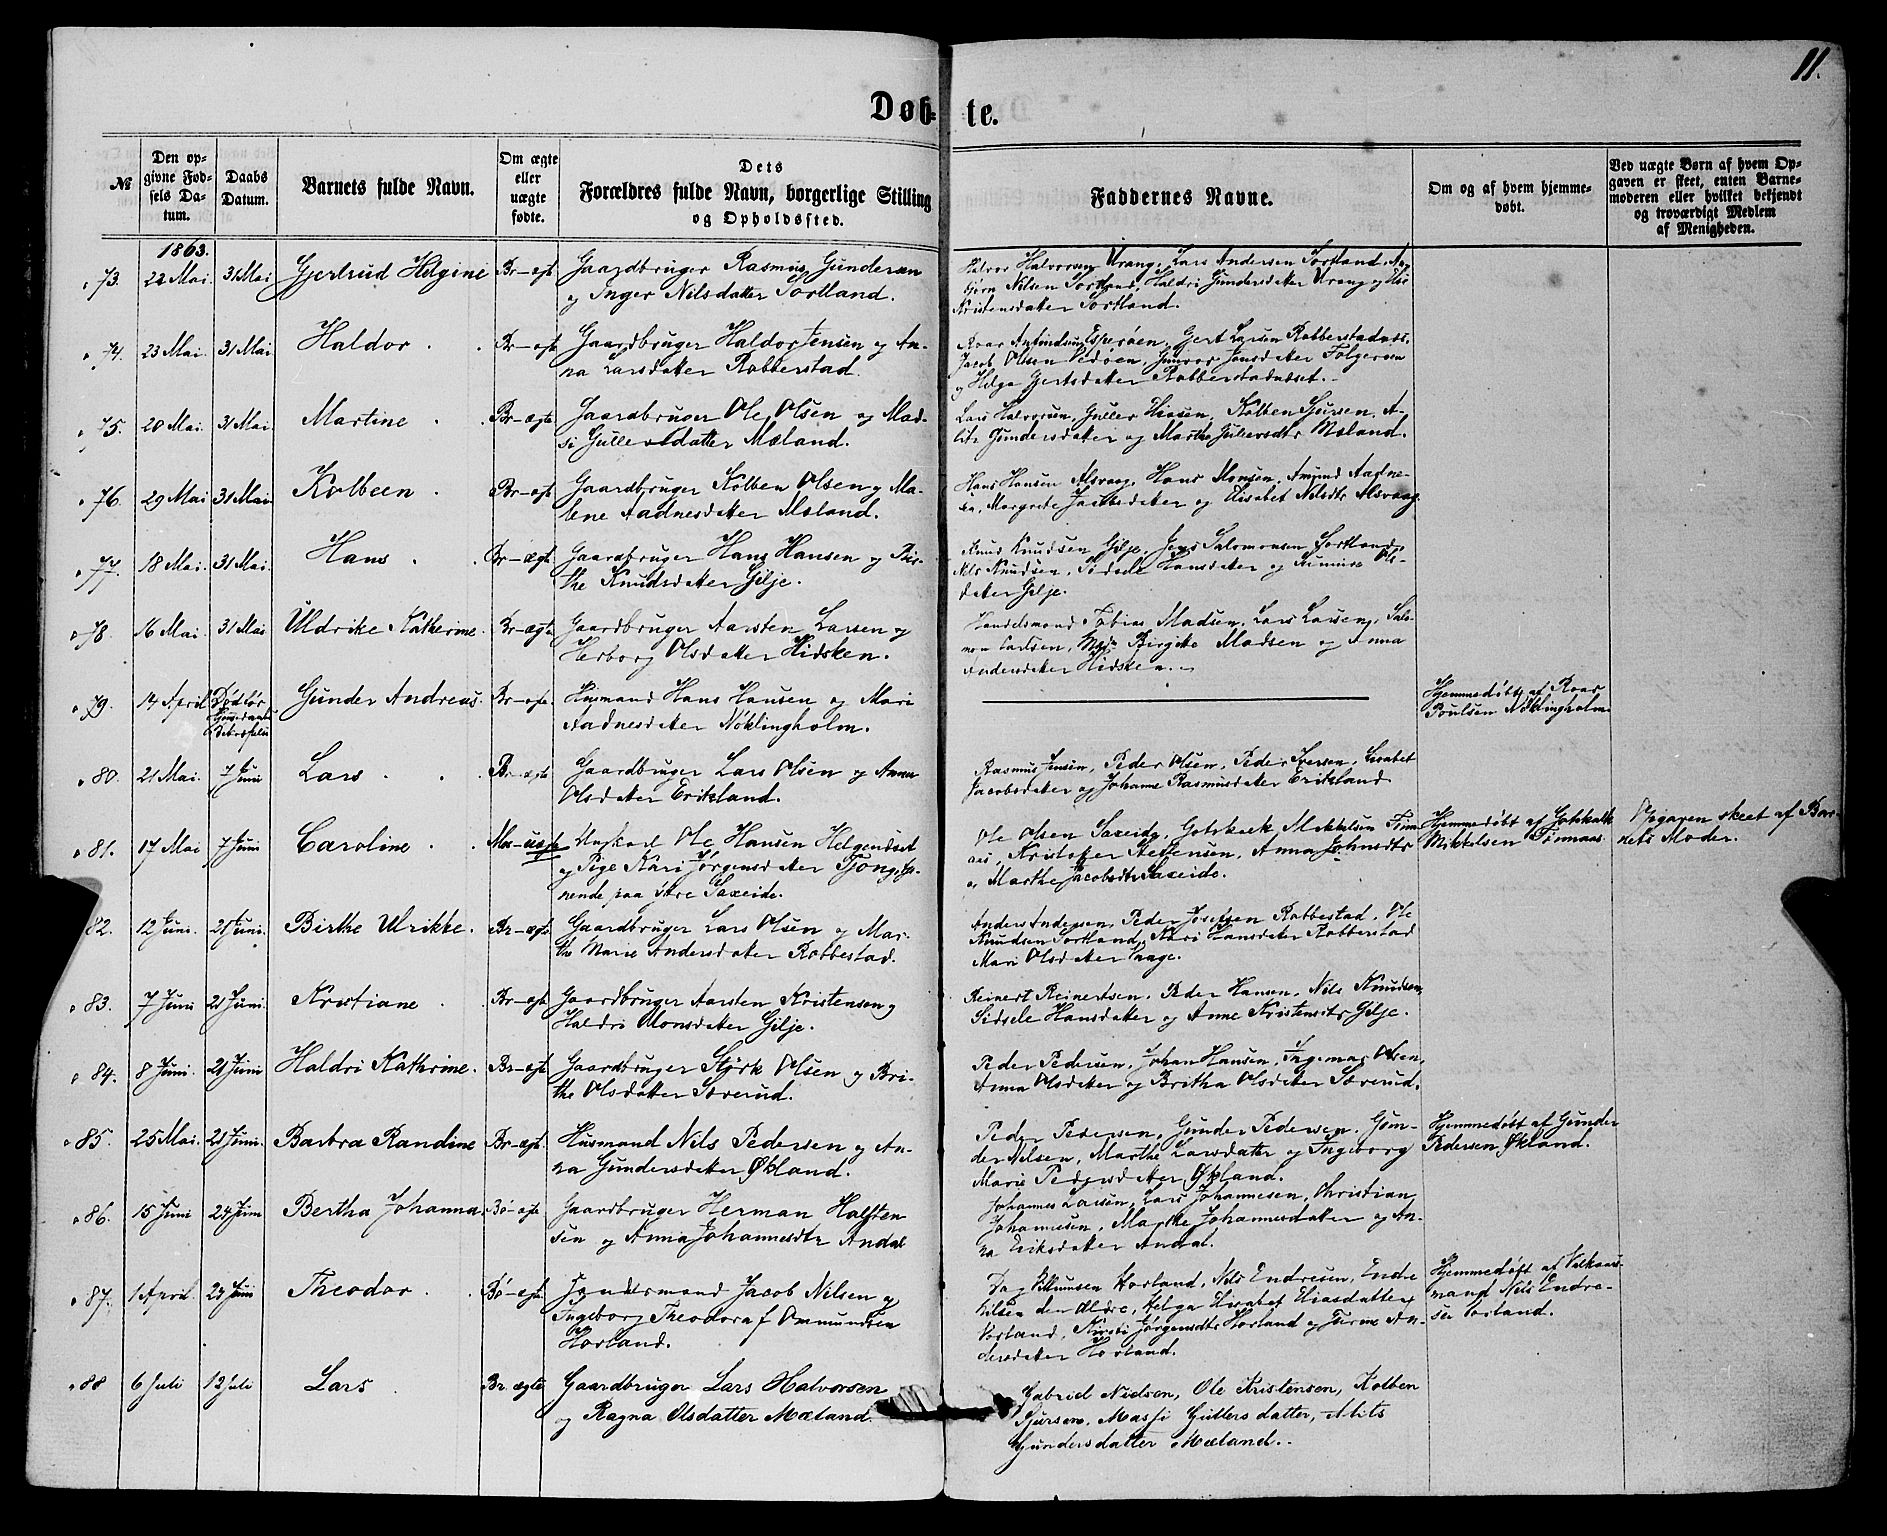 11.
Døb- te.
№
Den op-
givne Fød-
sels Da-
tum.
Daabs
Datum.
Barnets fulde Navn.
Om ægte
eller
uægte
fødte.
Dets
Forældres fulde Navn, borgerlige Stilling
og Opholdssted.
Faddernes Navne.
Om og af hvem hjemme-
døbt.
Ved uægte Børn af hvem Op-
gaven er skeet, enten Barne-
moderen eller hvilket bekjendt
og troværdigt Medlem
af Menigheden.
1863.
73. 22 Mai. 31 Mai Gjertrud Helgine Br-egt Gaardbruger Rasmus Gundersen
og Inger Nilsdatter Sortland.
Halvor Halvorsen Vrang, Lars Andersen Sortland,
Nilsen Sortland, Haldri Gundersdatter Vrang og
Kristensdatter Sortland.
74. 23 Mai. 31 Mai Haldor Br-egt Gaardbruger Haldor Jensen og An-
na Larsdatter Robberstad.
Roar Anfindsen Espeøen, Gert Larsen Robberstadnæs,
Jacob Olsen Vedøen, Gunvor Jonsdatter Folgerøen
og Helga Gertsdatter Robberstadnæset.
75. 20 Mai. 31 Mai Martine Br-ægte Gaardbruger Ole Olsen og Mad-
si Gulleredatter Mæland.
Lars Halvorsen, Guller Kolben Sjursen, A-
Gundersdatter og Marthe Mæland.
76. 29 Mai 31 Mai Kolbeen Br-egt Gaardbruger Kolben Olsen og Ma-
lene Aadnesdatter Mæland.
Hans Hansen Alsvaag, Hans Monsen, Amund Aadne-
sen, Margrete Jacobsdatter og Elisabet Nilsdtr Alsvaag
77. 18 Mai. 31 Mai. Hans Br-ægt Gaardbruger Hans Hansen og Bir-
the Knudsdatter Gilje.
Knud Knudsen Gilje, Jens Salomonsen Sortland,
Nils Knudsen, Sidsele Hansdatter og Ols-
datter Gilje.
78 16 Mai. 31 Mai Uldrike Katherine. Br-ægte Gaardbruger Aarsten Larsen og
Herborg Olsdatter Hidsken.
Handelsmand Tobias Madsen, Lars Larsen, Salo-
mon Carlsen, Birgitte Madsen og Anna
Andersdatter Hidsken.
79. 14 April Gunder Andreas. Br-egte. Husmand Hans Hansen og Mari
Aadnesdatter Nøklingholm.
Hjemmedøbt af Roar
Poulsen Nøklingholm
80. 21 Mai. 7 Juni Lars Br-ægte Gaardbruger Lars Olsen og Anna
Olsdatter Eriksland.
Rasmus Jensen, Peder Olsen, Peder Iversen,
Jacobsdatter og Johanne Rasmusdatter Eriksland
81. 17 Mai 7 Juni Caroline Ungkarl Ole Hansen Helgendset
og Pige Kari Jørgensdatter Tjong, tje-
nende paa Saxeide.
Ole Olsen Saxeide, Gotskalk Mikkelsen Fin-
naas, Kristofer Anna Johnsdtr
og Marthe Jacobsdtr Saxeide.
Hjemmedøbt af Gotskalk
Mikkelsen Finnaas.
Opgaven skeet af Bar-
nets Moder.
82. 12 Juni. 21 Juni. Birthe Ulrikke. Br-ægt Gaardbruger Lars Olsen og Mar-
the Marie Andersdatter Robbestad.
Anders Andersen, Peder Josefsen Robbestad, Ole
Knudsen Sortland, Kari Hansdatter Robberstad
Mari Olsdatter Vaage.
83. 7 Juni 21 Juni. Kristiane Br-egt Gaardbruger Aarsten Kristensen og
Haldri Monsdatter Gilje.
Reinert Reinertsen, Peder Hansen, Nils Knudsen,
Sidsele Hansdatter og Anne Kristensdtr Gilje.
84. 8 Juni. 21 Juni Haldri Kathrine. Br-egt Gaardbruger Størk Olsen og Bri-
the Olsdatter Sæverud.
Peder Pedersen, Johan Hansen, Ingemar Olsen,
Anna Olsdatter og Britha Olsdatter Sæverud.
85. 25 Mai. 21 Juni. Barbra Randine Br-ægt Husmand Nils Pedersen og An-
na Gundersdatter Økland.
Peder Pedersen, Gunder Pedersen, Gun-
der Nilsen, Marthe Larsdatter og Ingeborg
Marie Pedersdatter Økland.
Hjemmedøbt af Gunder
Pedersen Økland.
86. 15 Juni 24 Juni Bertha Johanna. Bø-egt Gaardbruger Herman Halsten
sen og Anna Johannesdtr Andal
Johannes Larsen, Lars Johannesen, Christian
Johannesen, Marthe Johannesdatter og An-
na Eriksdatter Andal.
87. 1 April 24 Juni Theodor Bø-egt Jacob Nilsen og
Ingeborg Theodora Ommundsen
Horland.
Dag Horland, Nils Endresen, Endre
Nilsen den Ældre, Helga Elisabet Eliasdatter
Vorland, Kristi Jørgensdtr Horland og An-
dersdatter Horland.
Hjemmedøbt af
mand Nils Endre-
sen Vorland.
88 6 Juli 12 Juli Lars Br ægte Gaardbruger Lars Halvorsen
og Ragna Olsdatter Mæland.
Gabriel Nielsen, Ole Kristensen, Kolben
Sjursen, Massi Gullersdatter, Alits
Gundersdatter Mæland.